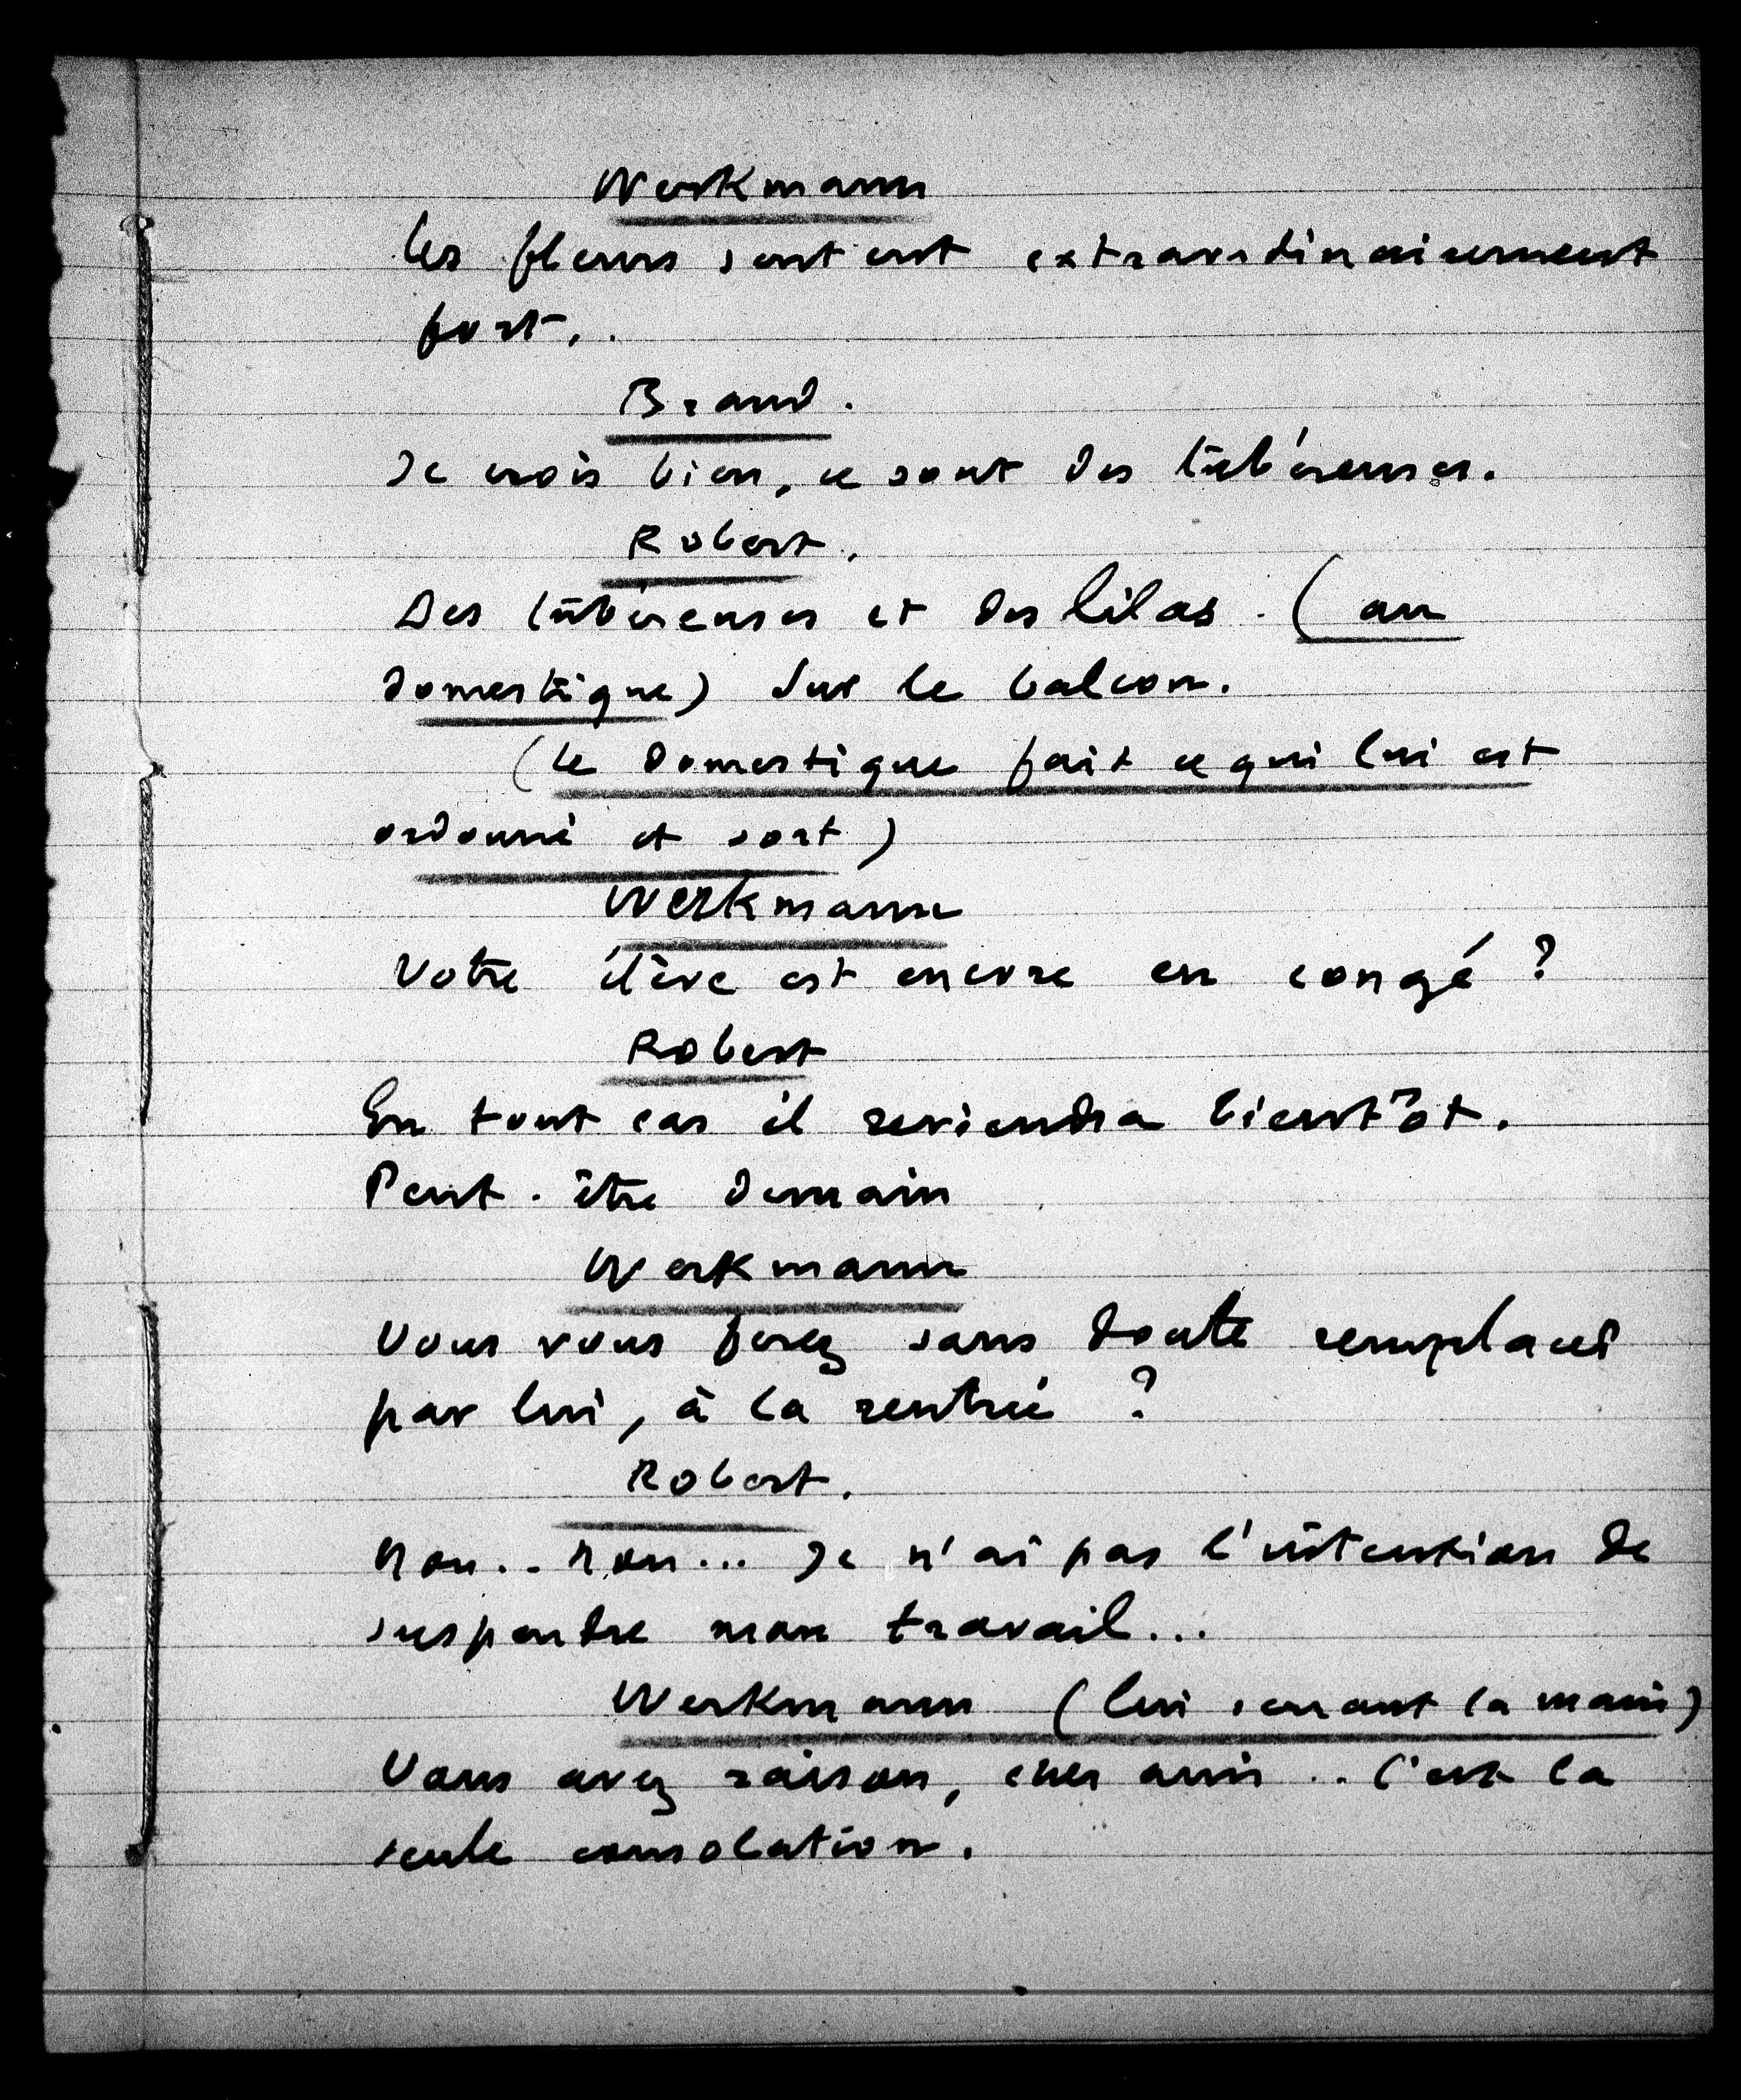 Werkmann
Les fleurs sentent extraordinairement
fort..
Brand.
Je crois bien, ce sont des tubéreuses.
Robert.
Des tubéreuses et des lilas. (au
domestique) Sur le balcon.
(Le domestique fait ce qui lui est
ordonné et sort)
Werkmann
Votre élève est encore en congé ?
Robert
En tout cas il reviendra bientôt.
Peut-être demain
Werkmann
Vous vous ferez sans doute remplacer
par lui, à la rentrée ?
Robert.
Non.. non... Je n'ai pas l'intention de
suspendre mon travail...
Werkmann (lui serrant la main)
Vous avez raison, cher ami.. C'est la
seule consolation.